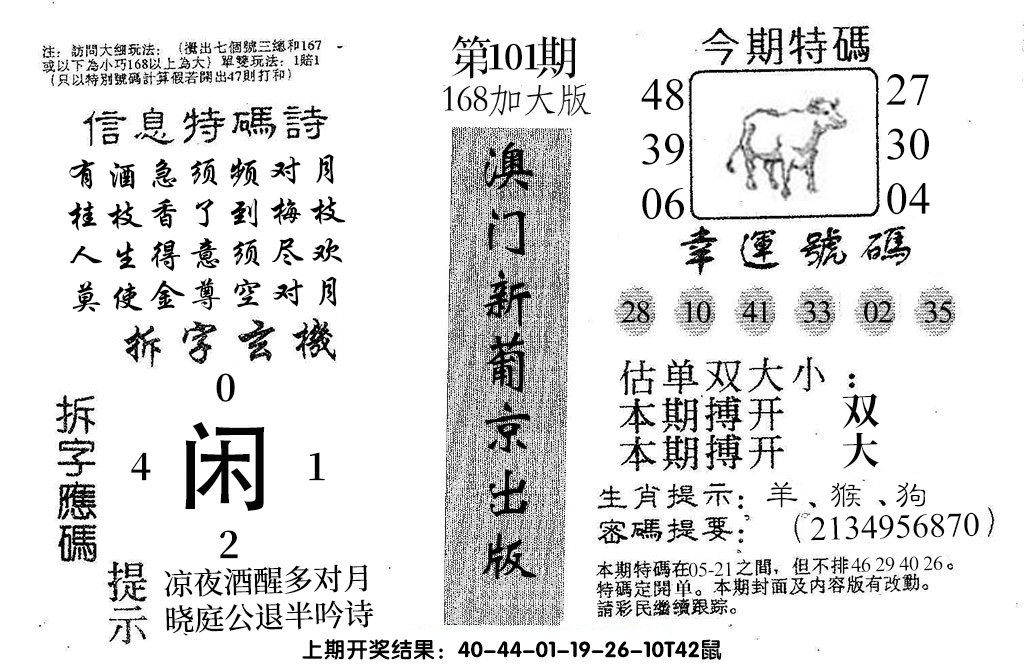 注：訪問大细玩法：（攪出七個號三總和167
或以下為小巧168以上為大）單雙玩法：1賠1
（只以特別號碼計算假若開出47則打和）
信息特碼詩
有酒急须频对月
桂枝香了到梅枝
人生得意须尽欢
莫使金尊空对月
拆字玄機
拆字應碼
0
4 闲 1
2
提示
凉夜酒醒多对月
晓庭公退半吟诗
第101期
168加大版
澳门新葡京出版
今期特碼
48 27
39 30
06 04
幸運號碼
28 10 41 33 02 35
估单双大小：
本期搏开 双
本期搏开 大
生肖提示：羊、猴、狗
密碼提要：（2134956870）
本期特碼在05-21之間，但不排46 29 40 26。
特碼定開单。本期封面及内容版有改動。
請彩民繼續跟踪。
上期开奖结果：40-44-01-19-26-10T42鼠